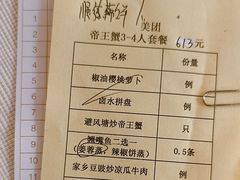 美团
帝王蟹3-4人套餐 613元
名称 份量
椒油樱桃萝卜 例
卤水拼盘 例
避风塘炒帝王蟹 只
鱼二选一
(姜蓉蒸、辣椒饼蒸) 0.5条
家乡豆豉炒凉瓜牛肉 例